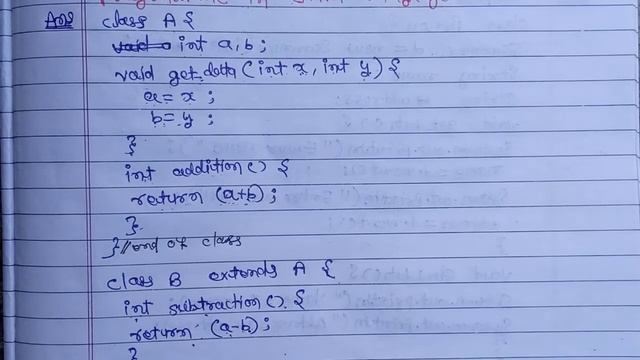 Ans class A {
void int a,b;
void get_data (int x, int y) {
a = x ;
b = y ;
}
int addition() {
return (a+b);
}
} //end of class
class B extends A {
int subtraction() {
return (a-b);
}